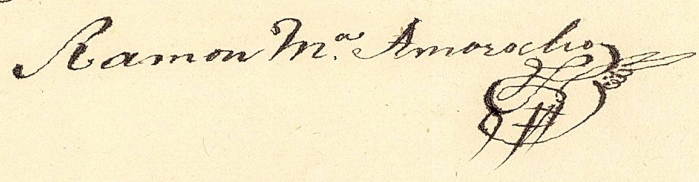 Ramon M.ª Amorocho